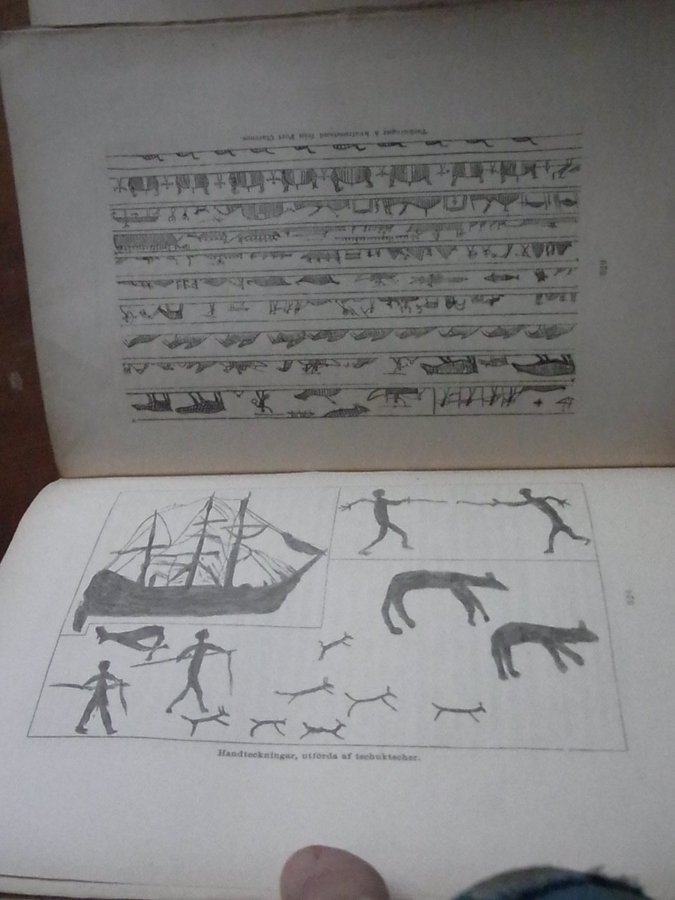 Teckningar å beninstrument från Port Clarence
Handteckningar, utförda af tschuktscher.